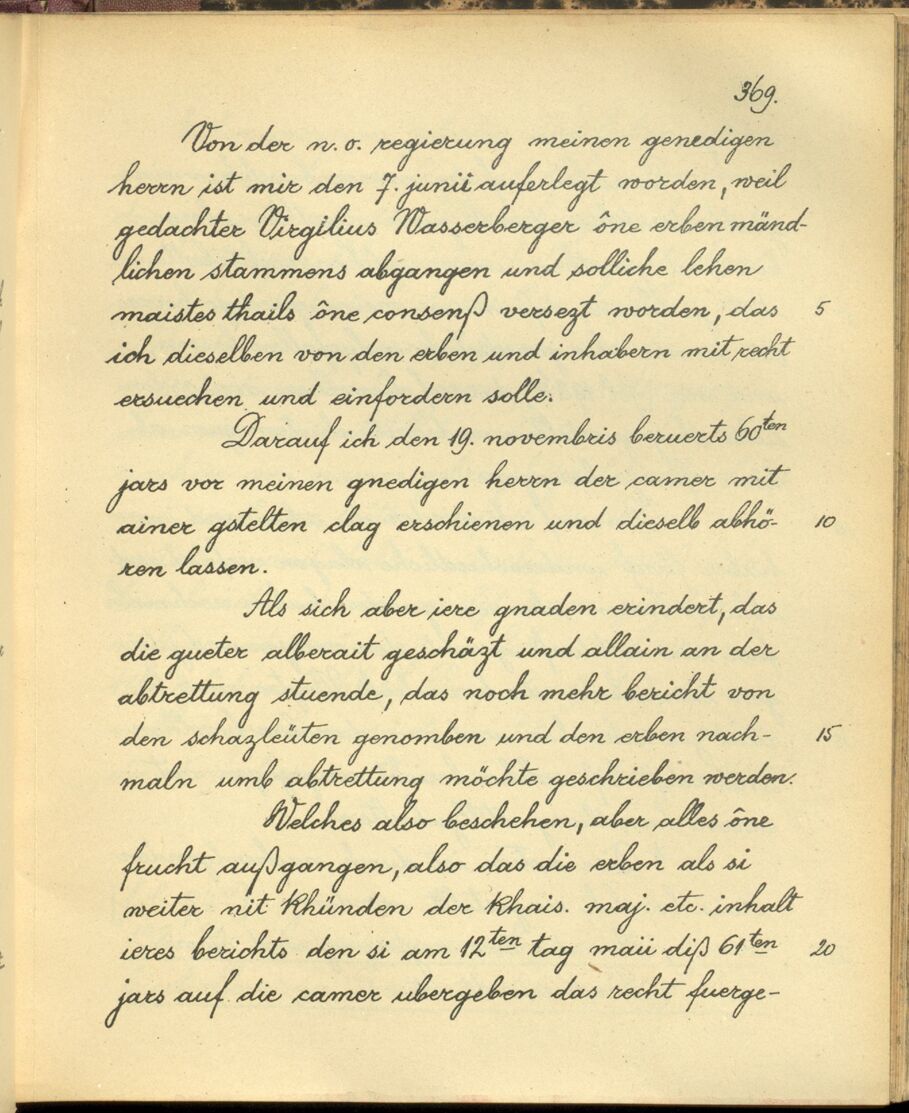 369.
Von der n. o. regierung meinen genedigen
herrn ist mir den 7. junii auferlegt worden, weil
gedachter Virgilius Wasserberger ône erben mänd-
lichen stammens abgangen und solliche lehen
maistes thails ône consenß versezt worden, das 5
ich dieselben von den erben und inhabern mit recht
ersuechen und einfordern solle.
Darauf ich den 19. novembris beruerts 60ten
jars vor meinen gnedigen herrn der camer mit
ainer gstelten clag erschienen und dieselb abhö- 10
ren lassen.
Als sich aber iere gnaden erindert, das
die gueter alberait geschäzt und allain an der
abtrettung stuende, das noch mehr bericht von
den schazleüten genomben und den erben nach- 15
maln umb abtrettung möchte geschrieben werden.
Welches also beschehen, aber alles ône
frucht außgangen, also das die erben als si
weiter nit khünden der khais. maj. etc. inhalt
ieres berichts den si am 12ten tag maii diß 61ten 20
jars auf die camer ubergeben das recht fuerge-